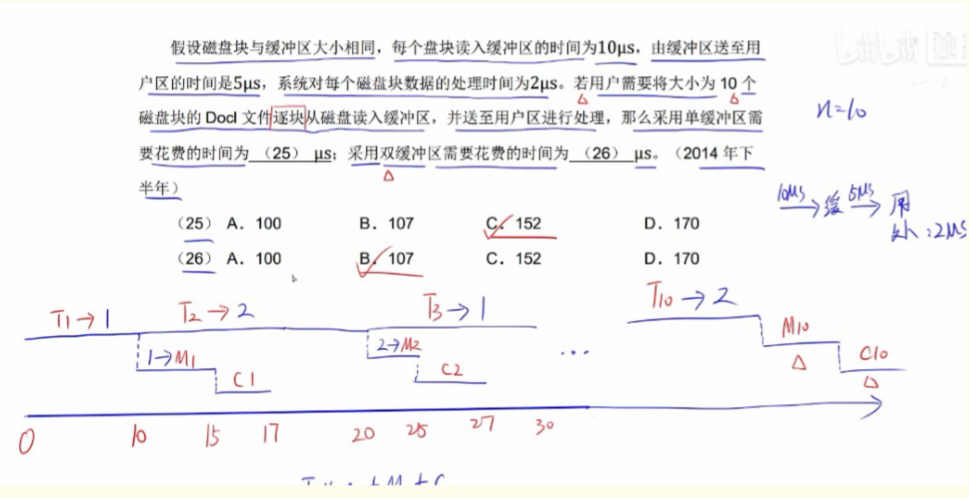 假设磁盘块与缓冲区大小相同，每个盘块读入缓冲区的时间为10μs，由缓冲区送至用
户区的时间是5μs，系统对每个磁盘块数据的处理时间为2μs。若用户需要将大小为 10 个
磁盘块的 Docl 文件逐块从磁盘读入缓冲区，并送至用户区进行处理，那么采用单缓冲区需
要花费的时间为 （25） μs；采用双缓冲区需要花费的时间为 （26） μs。（2014 年下
半年）
n=10
10μs → 缓 5μs → 用
处：2μs
（25） A．100 B．107 C．152 D．170
（26） A．100 B．107 C．152 D．170
T1→1 T2→2 T3→1 T10→2
1→M1 2→M2 ... M10
C1 C2 C10
0 10 15 17 20 25 27 30